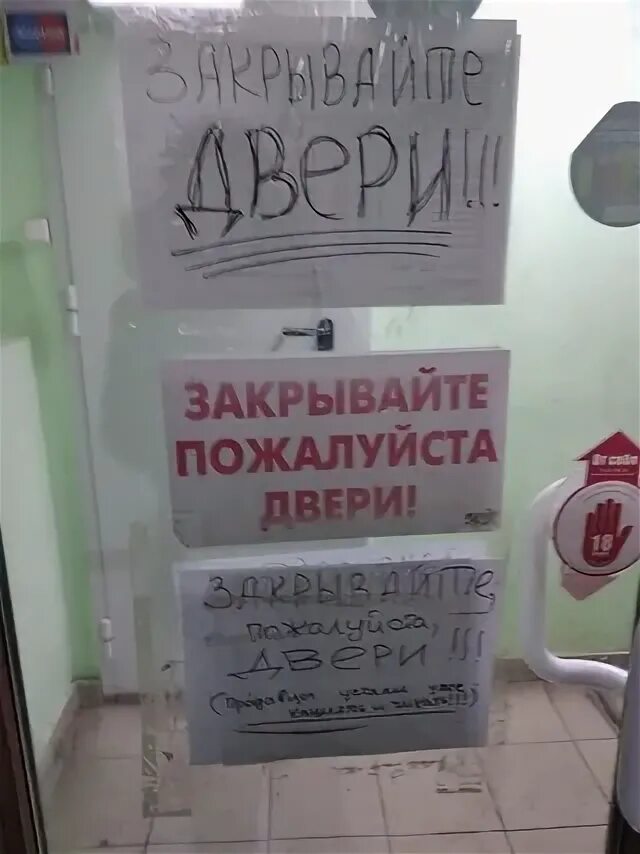 ЗАКРЫВАЙТЕ
ДВЕРИ!!!
ЗАКРЫВАЙТЕ
ПОЖАЛУЙСТА
ДВЕРИ!
ЗАКРЫВАЙТЕ,
пожалуйста,
ДВЕРИ !!!
(Продавцы устали уже
кашлять и чихать!!!)
от себя
18